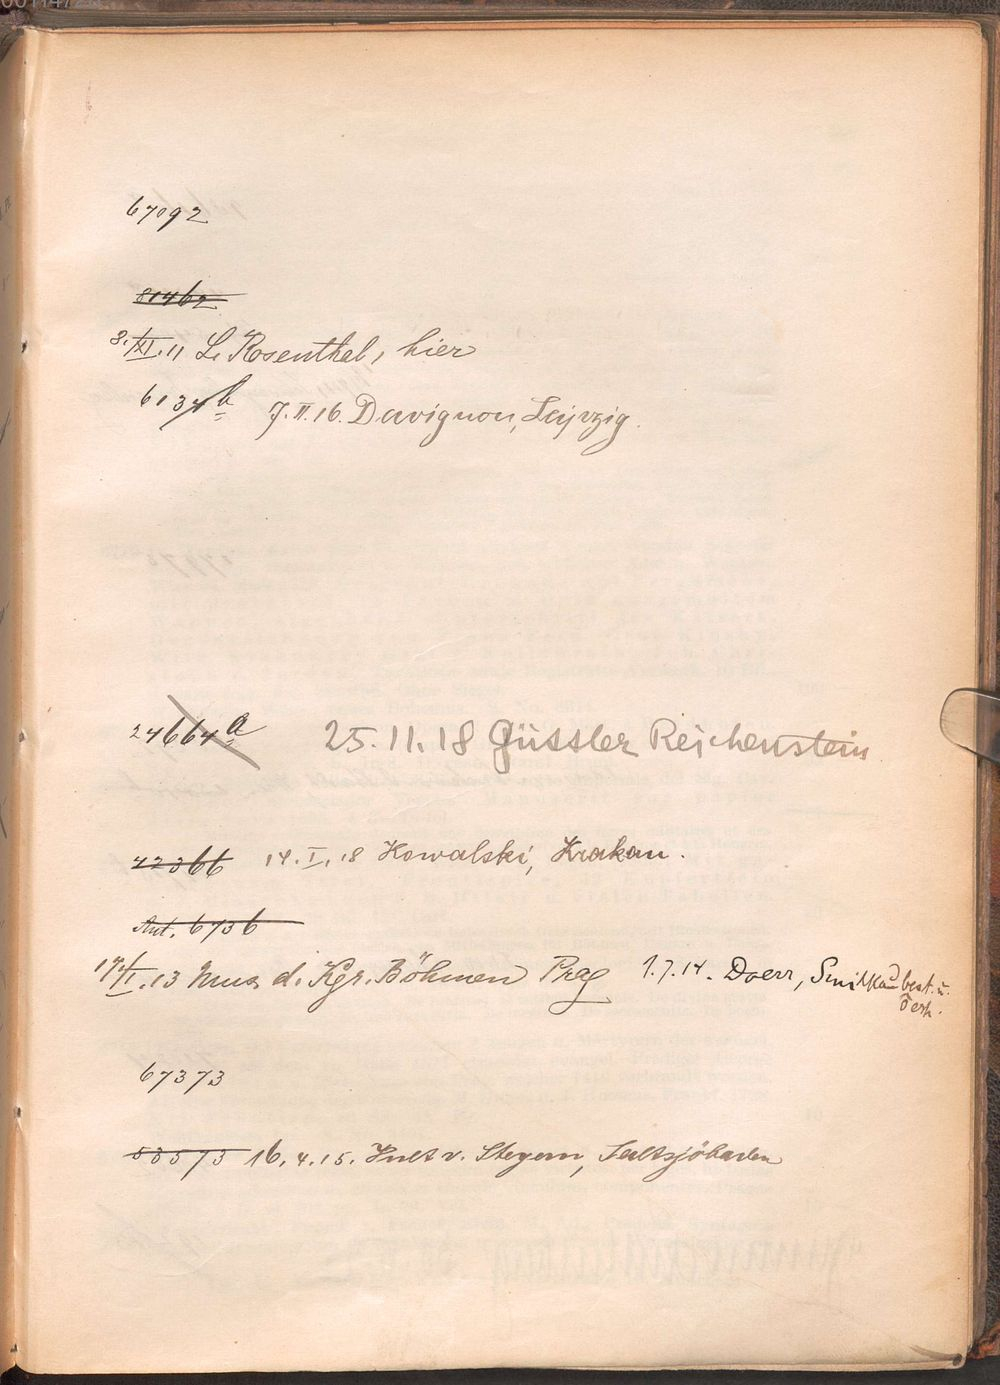 67092
81462
8./XI.11 L. Rosenthal, hier
6134b 7.II.16. Davignon, Leipzig.
24664a 25.11.18 Güssler Reichenstein
42366 14.I.18 Kowalski, Krakau.
Aut. 6736
17/I.13 Mus d. Kgr. Böhmen Prag 1.7.14. Doerr, Smilkau best. u.
67373
53573 16.4.15. v. Steyern, Saltsjöbaden